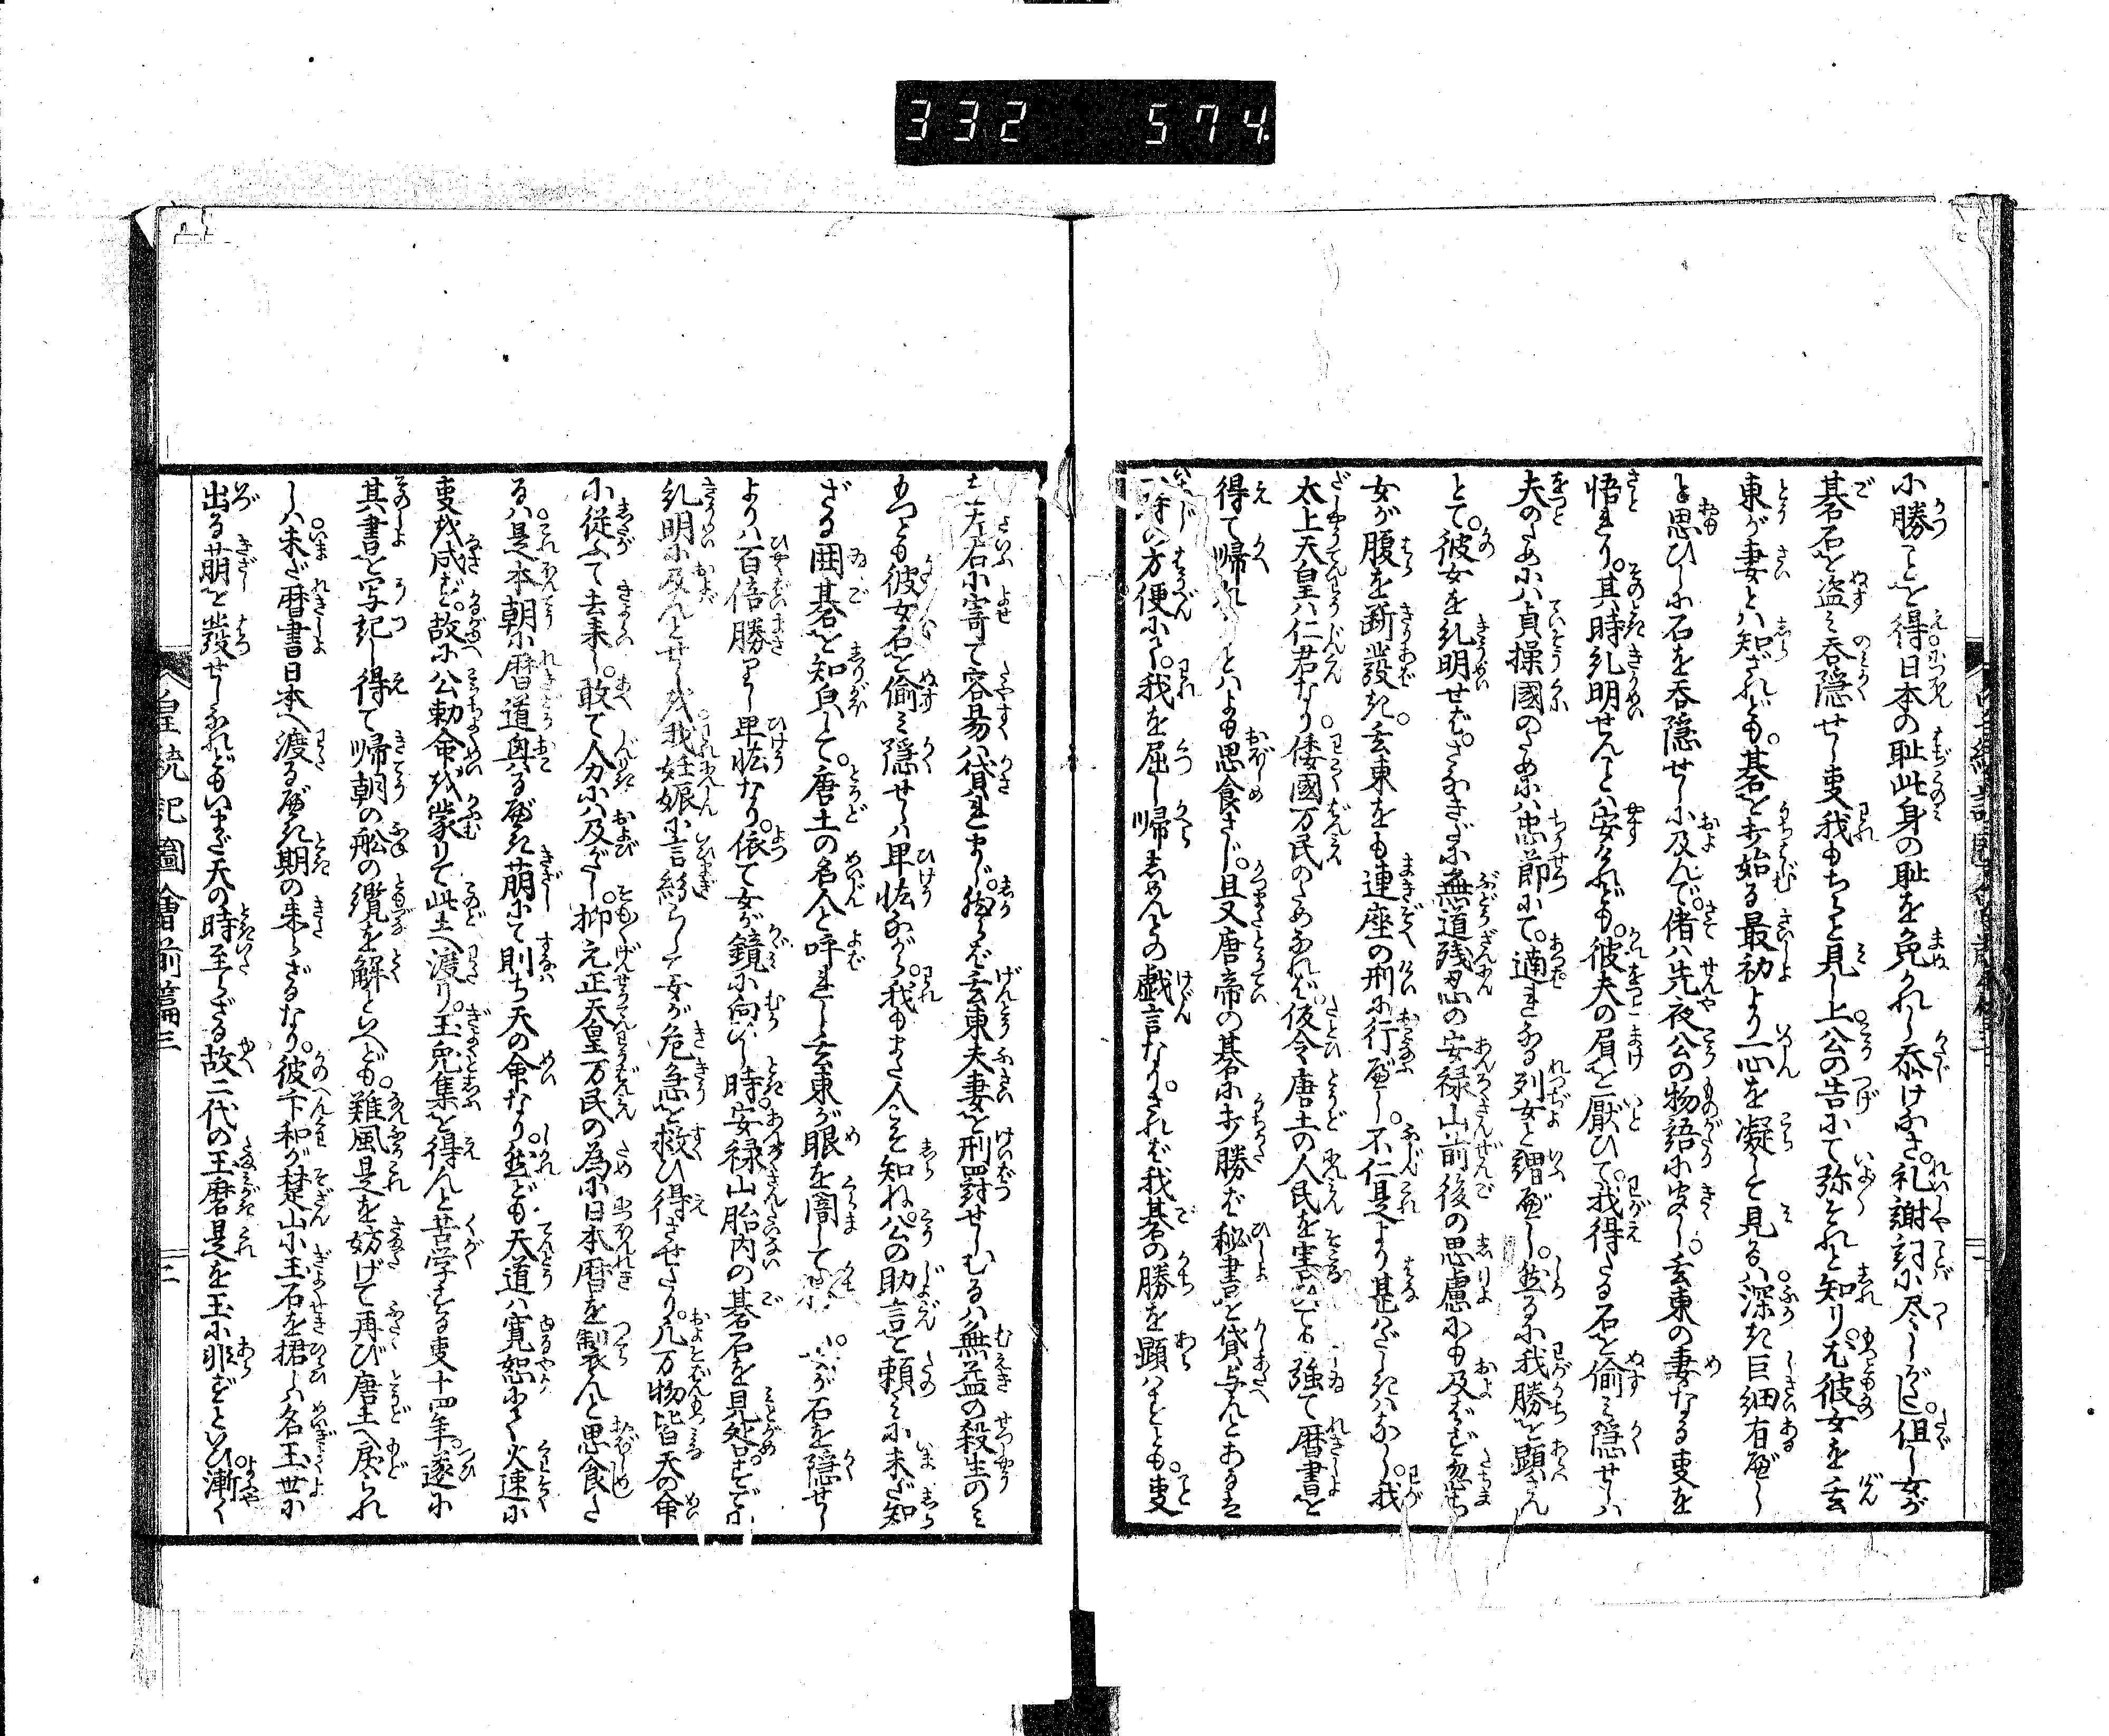 332 574
に勝ことを得日本の耻此身の耻を免かれし忝けなさ。礼謝詞に尽しがたし。但し女が
碁石を盗み呑隠せし叓我もちらと見し上公の告にて弥それと知りぬ。尤彼女を玄
東が妻とは知ざれども。碁を歩始る最初より一心を凝して見るは。深き巨細有べし
と思ひしに石を呑隠せしに及んで。偖は先夜公の物語に安し。玄東の妻なる叓を
悟まり。其時糺明せんとは安けれども。彼夫の眉を厭ひて。我得たる石を偷み隠せしは
夫のためには貞操國のためには忠節にて。適まなる列女と謂べし。然るに我勝を顕さん
とて。彼女を糺明せば。さなきだに無道残忍の安禄山前後の思慮にも及ばず忽ち
女が腹を断發き。玄東をも連座の刑に行べし。不仁是より甚はだしきはなし。我
太上天皇は仁君なり。倭國万民のためなれば。仮令唐土の人民を害しても強て暦書を
得て帰れ とはよも思食さじ。且又唐帝の碁に歩勝ば秘書を貸与んとあるは
 方便にて。我を屈し帰しめんとの戯言なり。されば我碁の勝を顕はすとも。叓
 左右に寄て容易は貸まじ。然らば玄東夫妻を刑罰せしむるは無益の殺生のみ
もつとも彼女石を偷み隠せしは卑怯ながら。我もまた人こそ知ね。公の助言を頼みに未だ知
ざる囲碁を知皃して。唐土の名人と呼ましし玄東が眼を闇して 。 が石を隠せし
よりは百倍勝りし卑怯なり。依て女が鏡に向ひし時。安禄山胎内の碁石を見咎。すでに
糺明に及んとせしを我妊娠に言紛らして女が危急を救ひ得させたり。凡万物皆天の命
に従ふて去来し。敢て人力には及がたし。抑元正天皇万民の為に日本暦を製んと思食た
るは。是本朝に暦道興るべき萠にて則ち天の命なり。然ども天道は寛恕にて火速に
叓を成ず。故に公勅命を蒙りて此土へ渡り。玉兎集を得んと苦学する叓十四年。遂に
其書を写記し得て帰朝の舩の纜を解といへども。難風是を妨げて再び唐土へ戻られ
しは。未だ暦書日本へ渡るべき期の来らざるなり。彼卞和が楚山に玉石を拾ひしは名玉世に
出る萠を發せしなれどもいまだ天の時至らざる故二代の王磨是を玉に非ずといひ。漸く
皇統記圖會前篇三